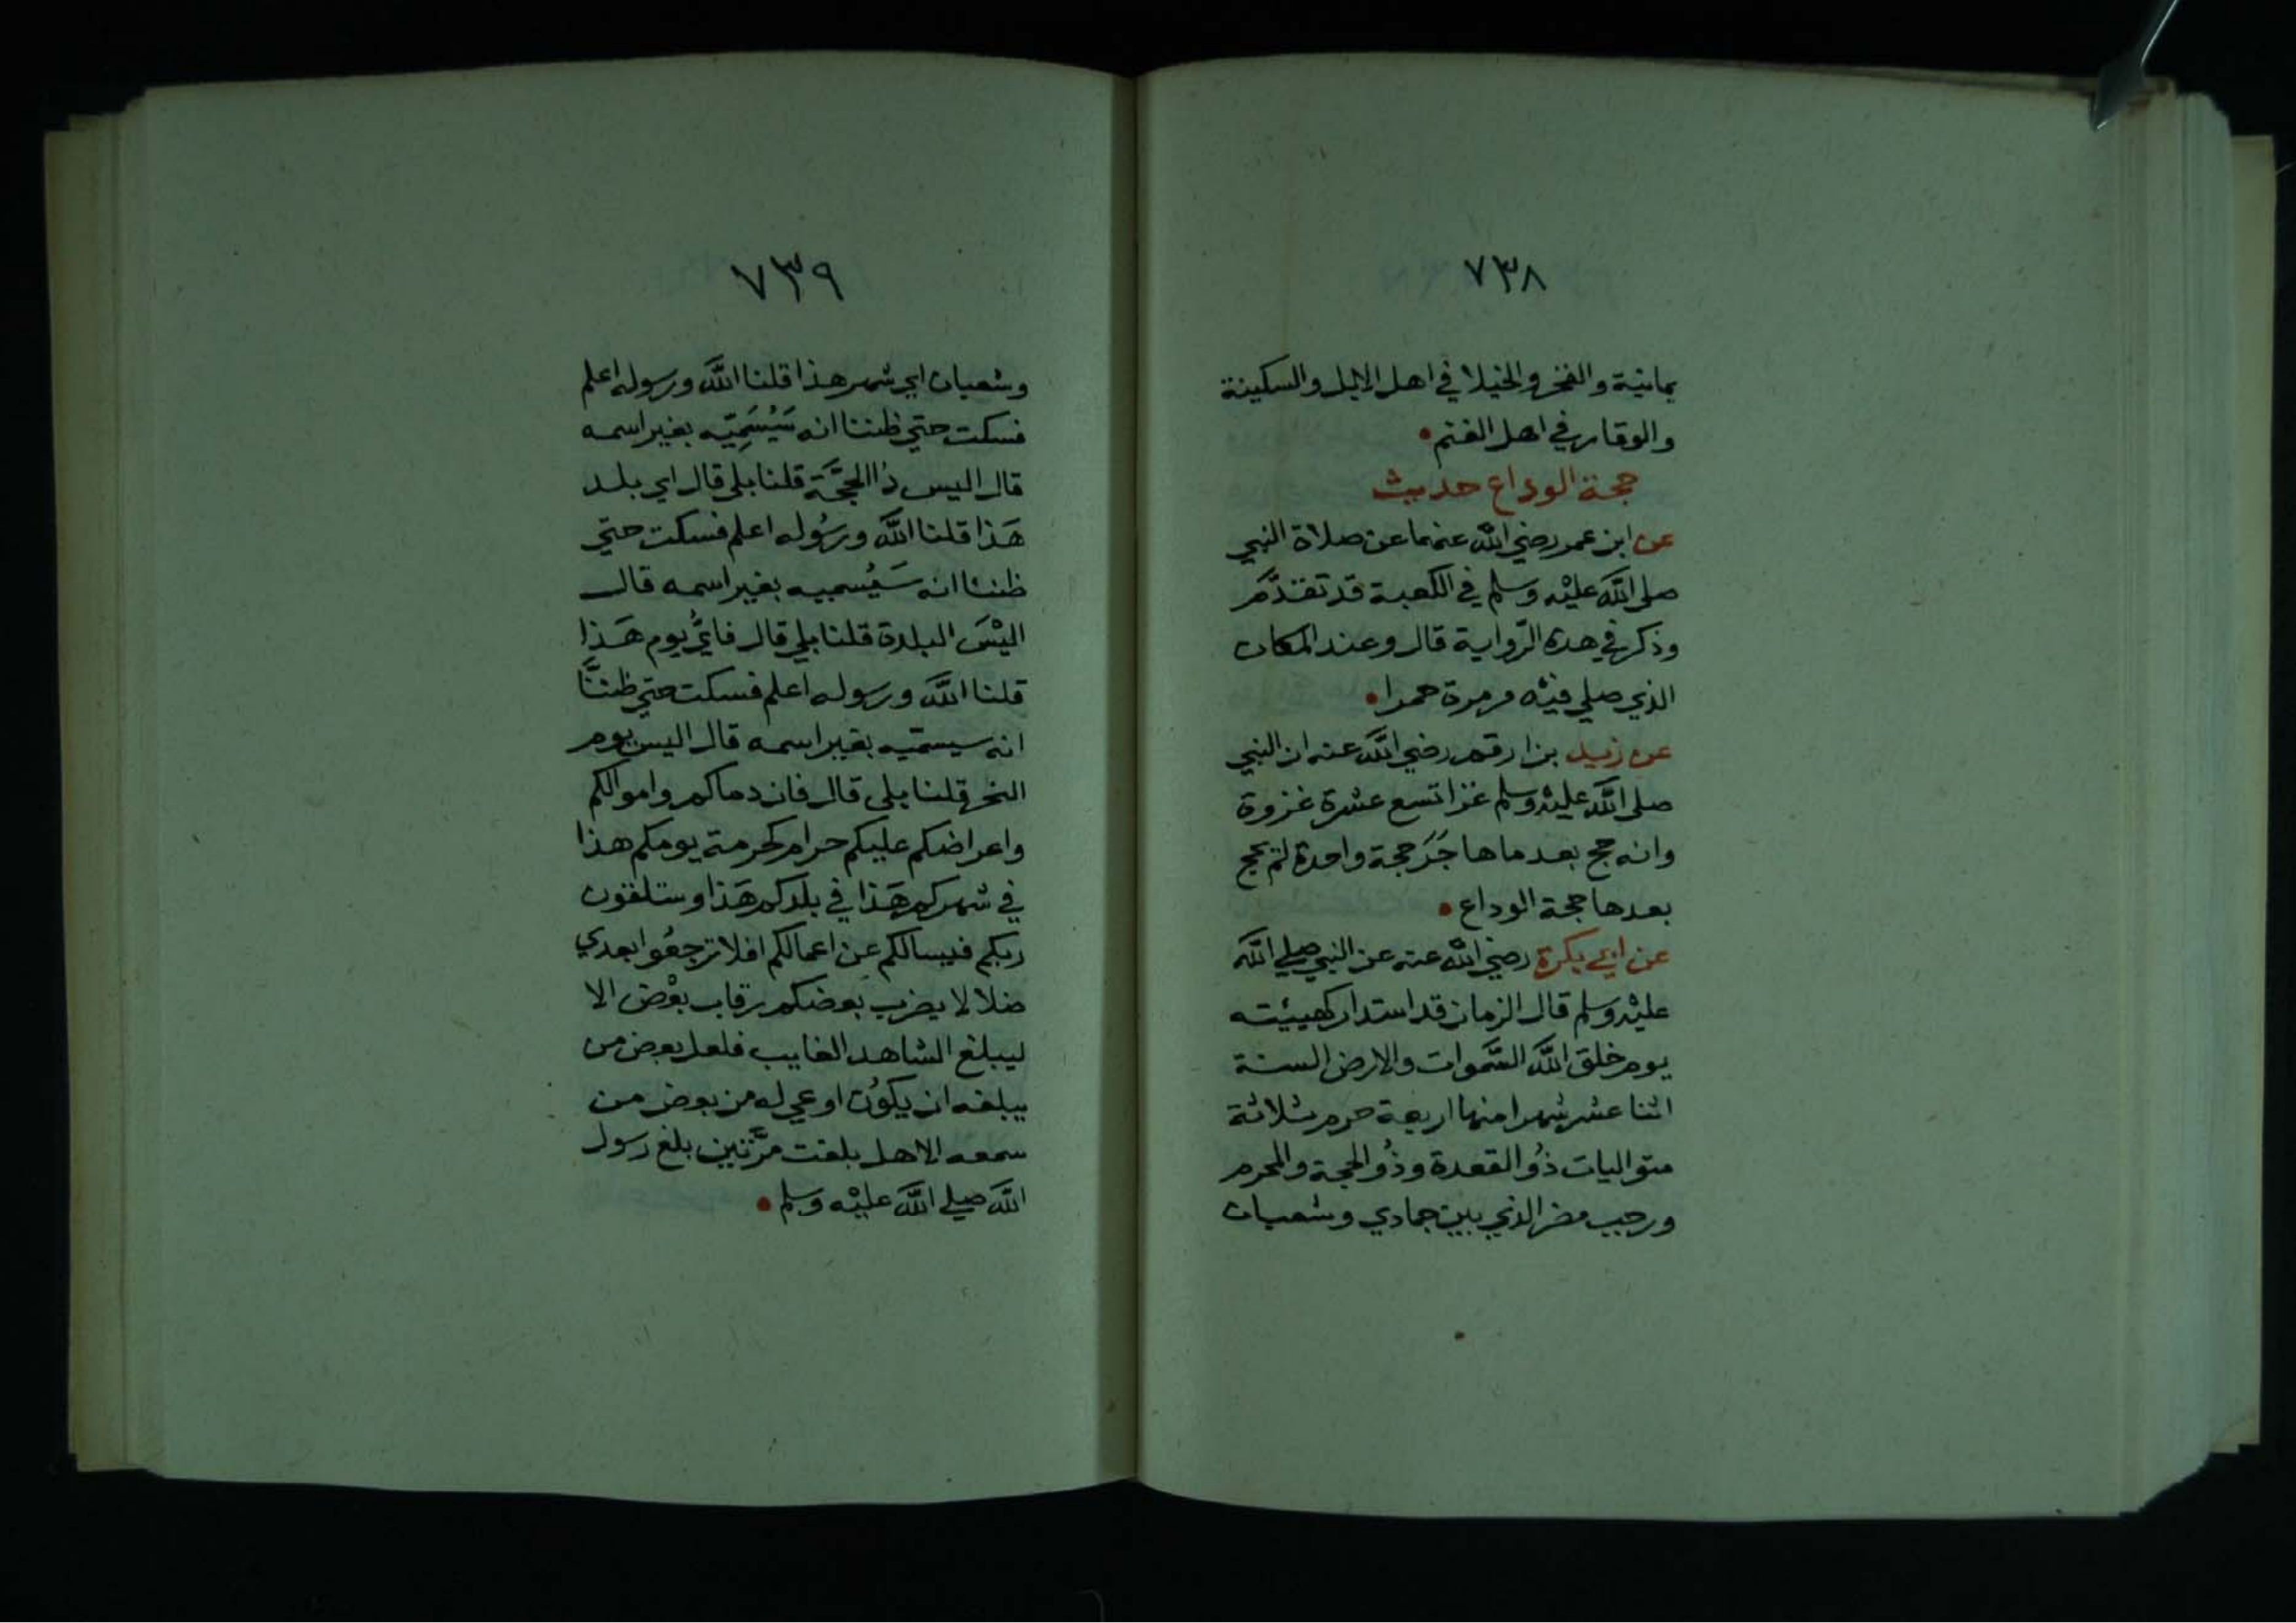 ٧٣٨
يمانية والفخر والخيلا في اهل الابل والسكينة
والوقار في اهل الغنم
حجة الوداع حديث
عن ابن عمر رضي الله عنهما عن صلاة النبي
صلى الله عليْه وسلم في الكعبة قد تقدَّم
وذكر في هده الرّواية قال وعند المكان
الذي صلي فيْه مرمرة حمرا
عن زيد بن ارقم رضي الله عنه ان النبي
صلى الله عليْه وسلم غزا تسع عشرة غزوة
وانه حج بعد ما هاجَرَ حجة واحدة لم يحج
بعدها حجة الوداع
عن ابي بكرة رضي الله عنه عن النبي صلي الله
عليْه وسلم قال الزمان قد استدار كهيئته
يوم خلق الله السَّموات والارض السنة
اثنا عشر شهرا منها اربعة حرم ثلاثة
متواليات ذُو القعدة وذُو الحجة والمحرم
ورجب مضر الذي بين جمادي وشعبان
٧٣٩
وشعبان اي شهر هذا قلنا الله ورسوله اعلم
فسكت حتي ظننا انه سَيُسَمِيّه بغير اسمه
قال اليس ذا الحجَّة قلنا بلى قال اي بلد
هَذا قلنا الله ورسُوله اعلم فسكت حتي
ظننا انه سَيُسميه بغير اسمه قال
اليْسَ البلدة قلنا بلي قال فايُّ يوم هَذا
قلنا الله ورسوله اعلم فسكت حتي ظننَّا
انه سيسمّيه بغير اسمه قال اليس يوم
النحر قلنا بلى قال فان دماكم واموالكم
واعراضكم عليكم حرام كحرمة يومكم هذا
في شهركم هَذا في بلدكم هَذا وستلقون
ربكم فيسالكم عن اعمالكم افلا ترجعُوا بعدي
ضلالا يضرب بعضكم رقاب بعْض الا
ليبلغ الشاهد الغايب فلعل بعض من
يبلغه ان يكوُن اوعي له من بعض من
سمعه الا هل بلغت مرَّتين بلغ رسول
الله صلي الله عليْه وسلم